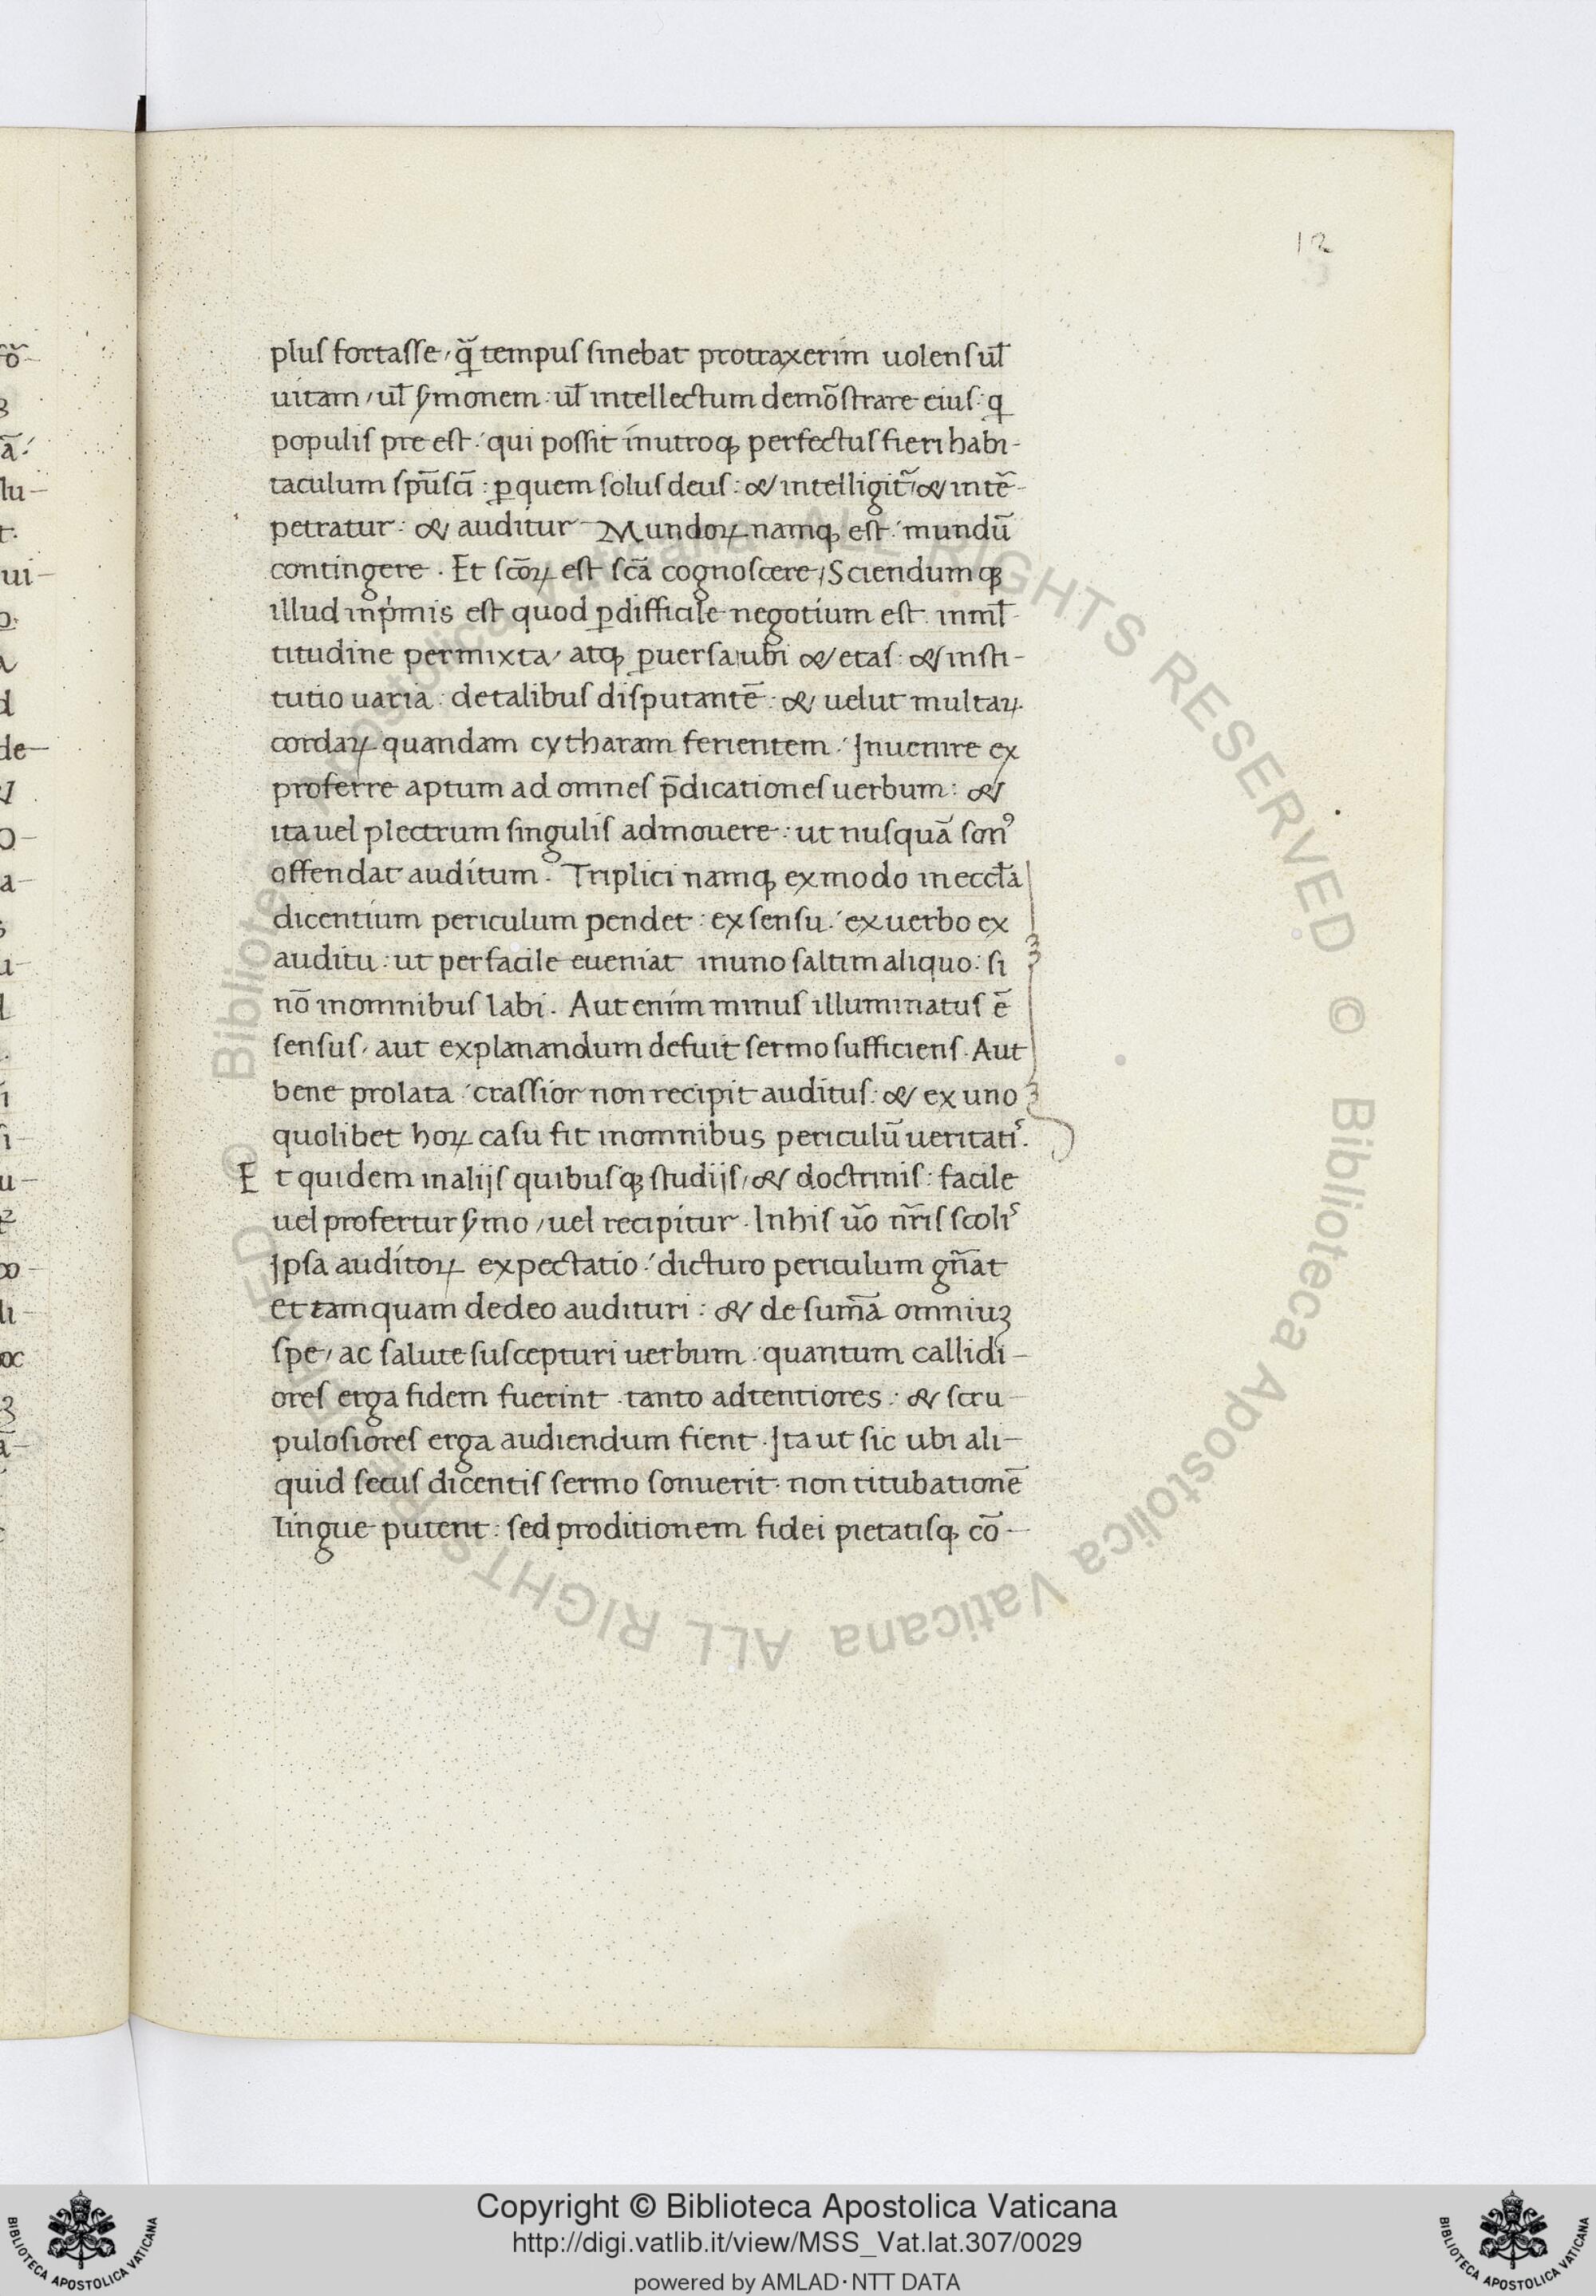 12
plus fortasse, q̃ tempus sinebat protraxerim uolens ul̃
uitam, ul̃ s̃monem: ul̃ intellectum demõstrare eius: q
populis pre est: qui possit inutroq; perfectus fieri habi-
taculum sp̃usc̃i: p quem solus deus: & intelligit̃, & intẽ-
petratur: & auditur Mundoꝝ namq; est: mundũ
contingere. Et sc̃oꝝ est sc̃a cognoscere, Sciendumq;
illud inp̃mis est quod pdifficile negotium est inml̃-
titudine permixta, atq; puersa, ubi & etas: & insti-
tutio uaria: detalibus disputantẽ: & uelut multaꝝ
cordaꝝ quandam cytharam ferientem: Inuenire ex
proferre aptum ad omnes p̃dicationes uerbum: &
ita uel plectrum singulis admouere: ut nusquã son᾿
offendat auditum. Triplici namq; ex modo ineccl̃a
dicentium periculum pendet: ex sensu: ex uerbo ex
auditu: ut perfacile eueniat inuno saltim aliquo: si
nõ inomnibus labi. Aut enim minus illuminatus ẽ
sensus, aut explanandum defuit sermo sufficiens. Aut
bene prolata: crassior non recipit auditus: & ex uno
quolibet hoꝝ casu fit inomnibus periculũ ueritatis.
Et quidem inalijs quibusq; studijs, & doctrinis: facile
uel profertur s̃mo, uel recipitur. Inhis ũo nr̃is scolis
Ipsa auditoꝝ expectatio: dicturo periculum gñat
et tamquam dedeo audituri: & de sum̃a omniuꝫ
spe, ac salute suscepturi uerbum: quantum callidi-
ores erga fidem fuerint tanto adtentiores: & scru-
pulosiores erga audiendum fient. Ita ut sic ubi ali-
quid secus dicentis sermo sonuerit. non titubationẽ
lingue putent: sed proditionem fidei pietatisq; cõ-
Copyright © Biblioteca Apostolica Vaticana
http://digi.vatlib.it/view/MSS_Vat.lat.307/0029
powered by AMLAD·NTT DATA
© Biblioteca Apostolica Vaticana ALL RIGHTS RESERVED © Biblioteca Apostolica Vaticana ALL RIGHTS RESERVED
BIBLIOTECA APOSTOLICA VATICANA
BIBLIOTECA APOSTOLICA VATICANA